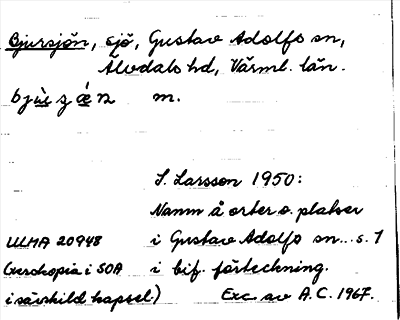 Bjursjön, sjö, Gustav Adolfs sn,
Älvdals hd, Värml. län.
m.
S. Larsson 1950:
Namn å orter o. platser
ULMA 20948 i Gustav Adolfs sn... s. 1
(xerokopia i SOA i bif. förteckning.
i särskild kapsel.) Exc av A.C. 1967.